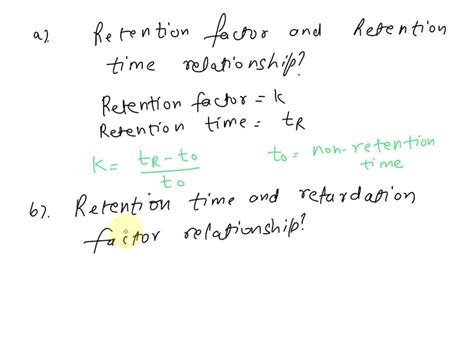 a). Retention factor and Retention
time relationship?
Retention factor = k
Retention time = tR
k = tR - to / to to = non-retention
time
b). Retention time and retardation
factor relationship?